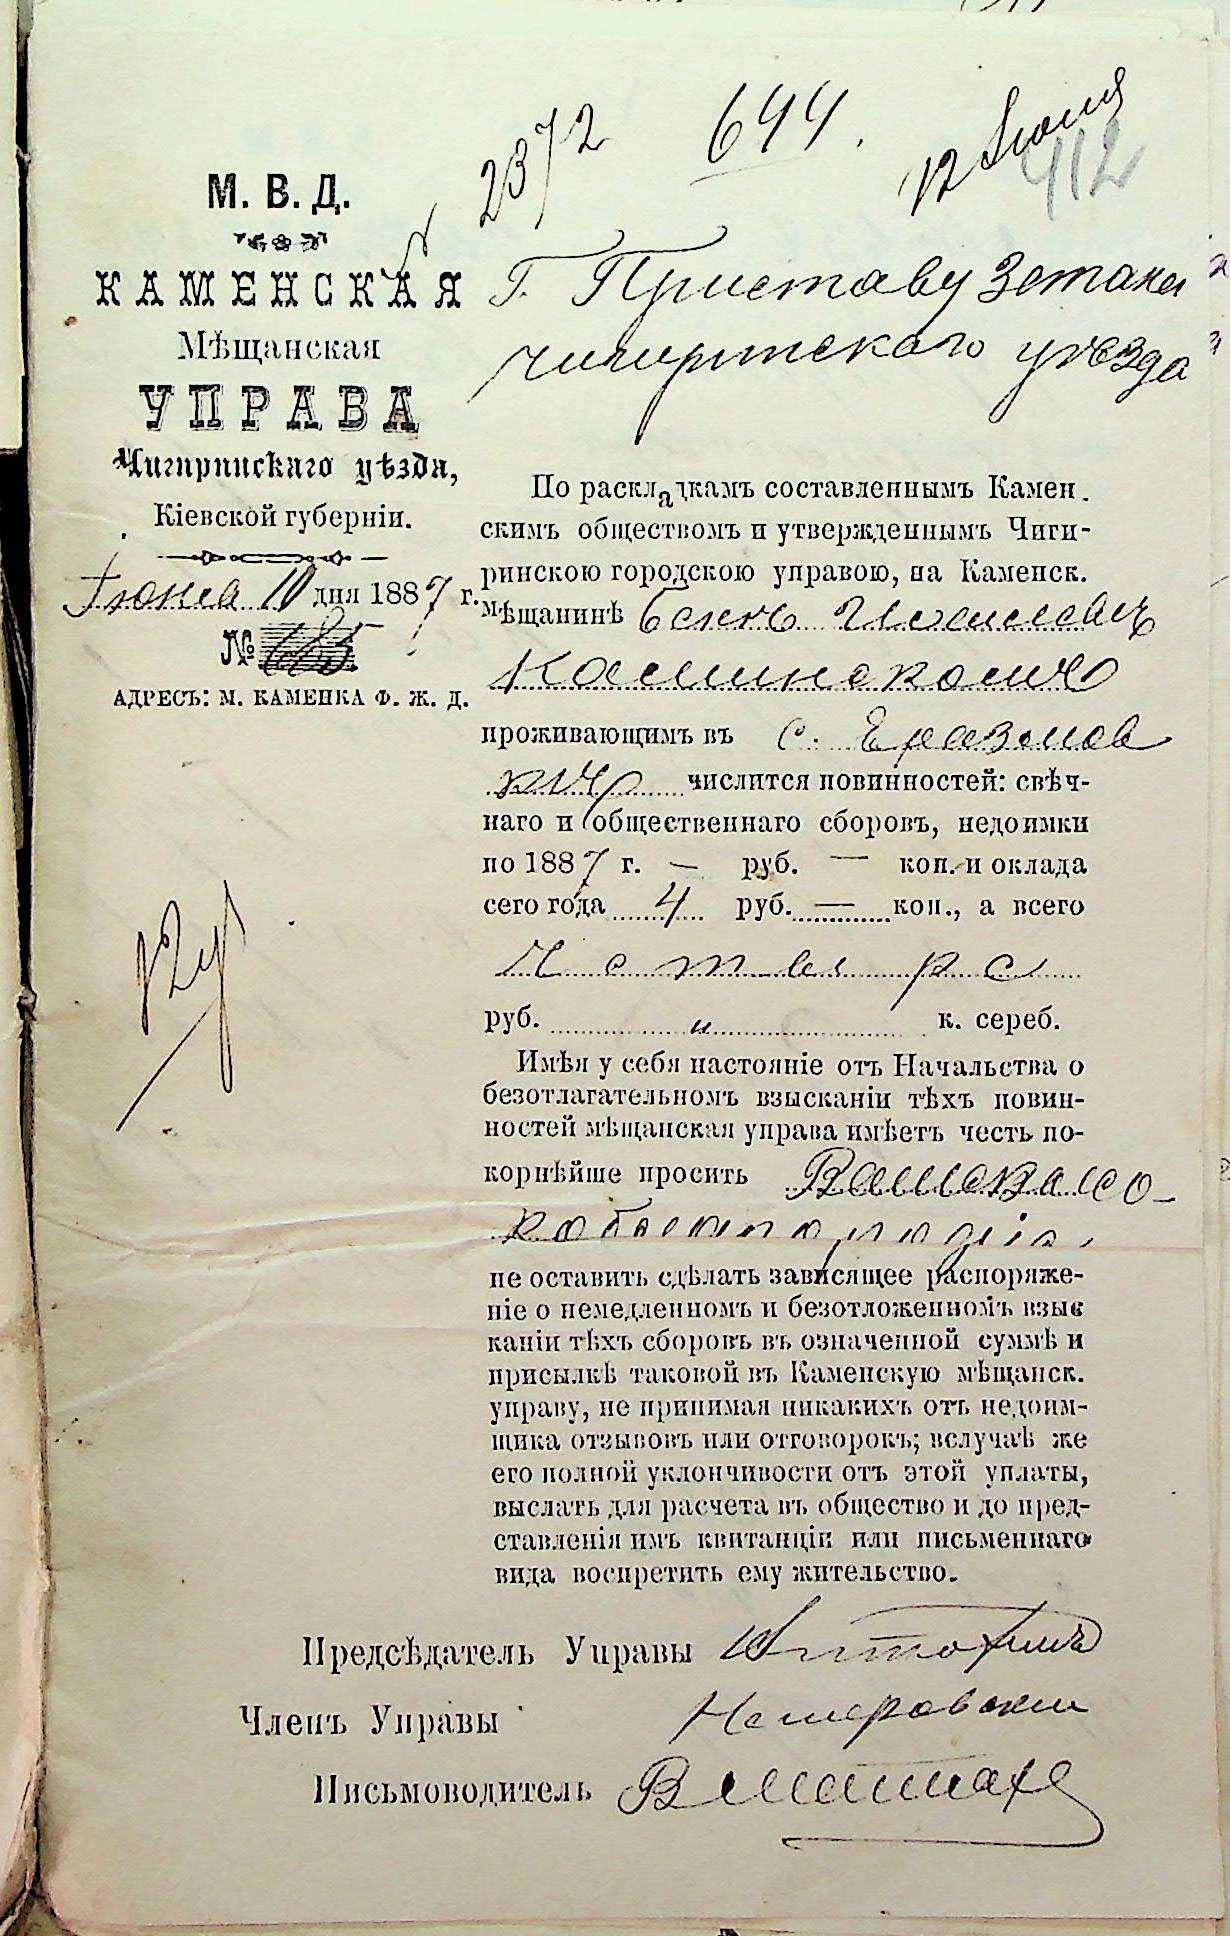 2372
644.
12 Июня
412
М. В. Д.
КАМЕНСКАЯ
Мѣщанская
УПРАВА
Чигиринскаго уѣзда,
Кіевской губерніи.
Іюня 10 дня 1887 г.
№ 685
АДРЕСЪ: М. КАМЕНКА Ф. Ж. Д.
Г. Приставу 3 стана
Чигиринскаго уѣзда
По раскладкамъ составленнымъ Камен.
скимъ обществомъ и утвержденнымъ Чиги-
ринскою городскою управою, на Каменск.
мѣщанинѣ
проживающимъ въ с. Еразмов
кѣ числится повинностей: свѣч-
наго и общественнаго сборовъ, недоимки
по 1887 г. — руб. — коп. и оклада
сего года 4 руб. — коп., а всего
Четыре
руб. " к. сереб.
Имѣя у себя настояніе отъ Начальства о
безотлагательномъ взысканіи тѣхъ повин-
ностей мѣщанская управа имѣетъ честь по-
корнѣйше просить Ваше Высо-
коблагородіе,
не оставить сдѣлать зависящее распоряже-
ніе о немедленномъ и безотложенномъ взыс
каніи тѣхъ сборовъ въ означенной суммѣ и
присылкѣ таковой въ Каменскую мѣщанск.
управу, не принимая никакихъ отъ недоим-
щика отзывовъ или отговорокъ; вслучаѣ же
его полной уклончивости отъ этой уплаты,
выслать для расчета въ общество и до пред-
ставленія имъ квитанціи или письменнаго
вида воспретить ему жительство.
Предсѣдатель Управы
Членъ Управы
Письмоводитель